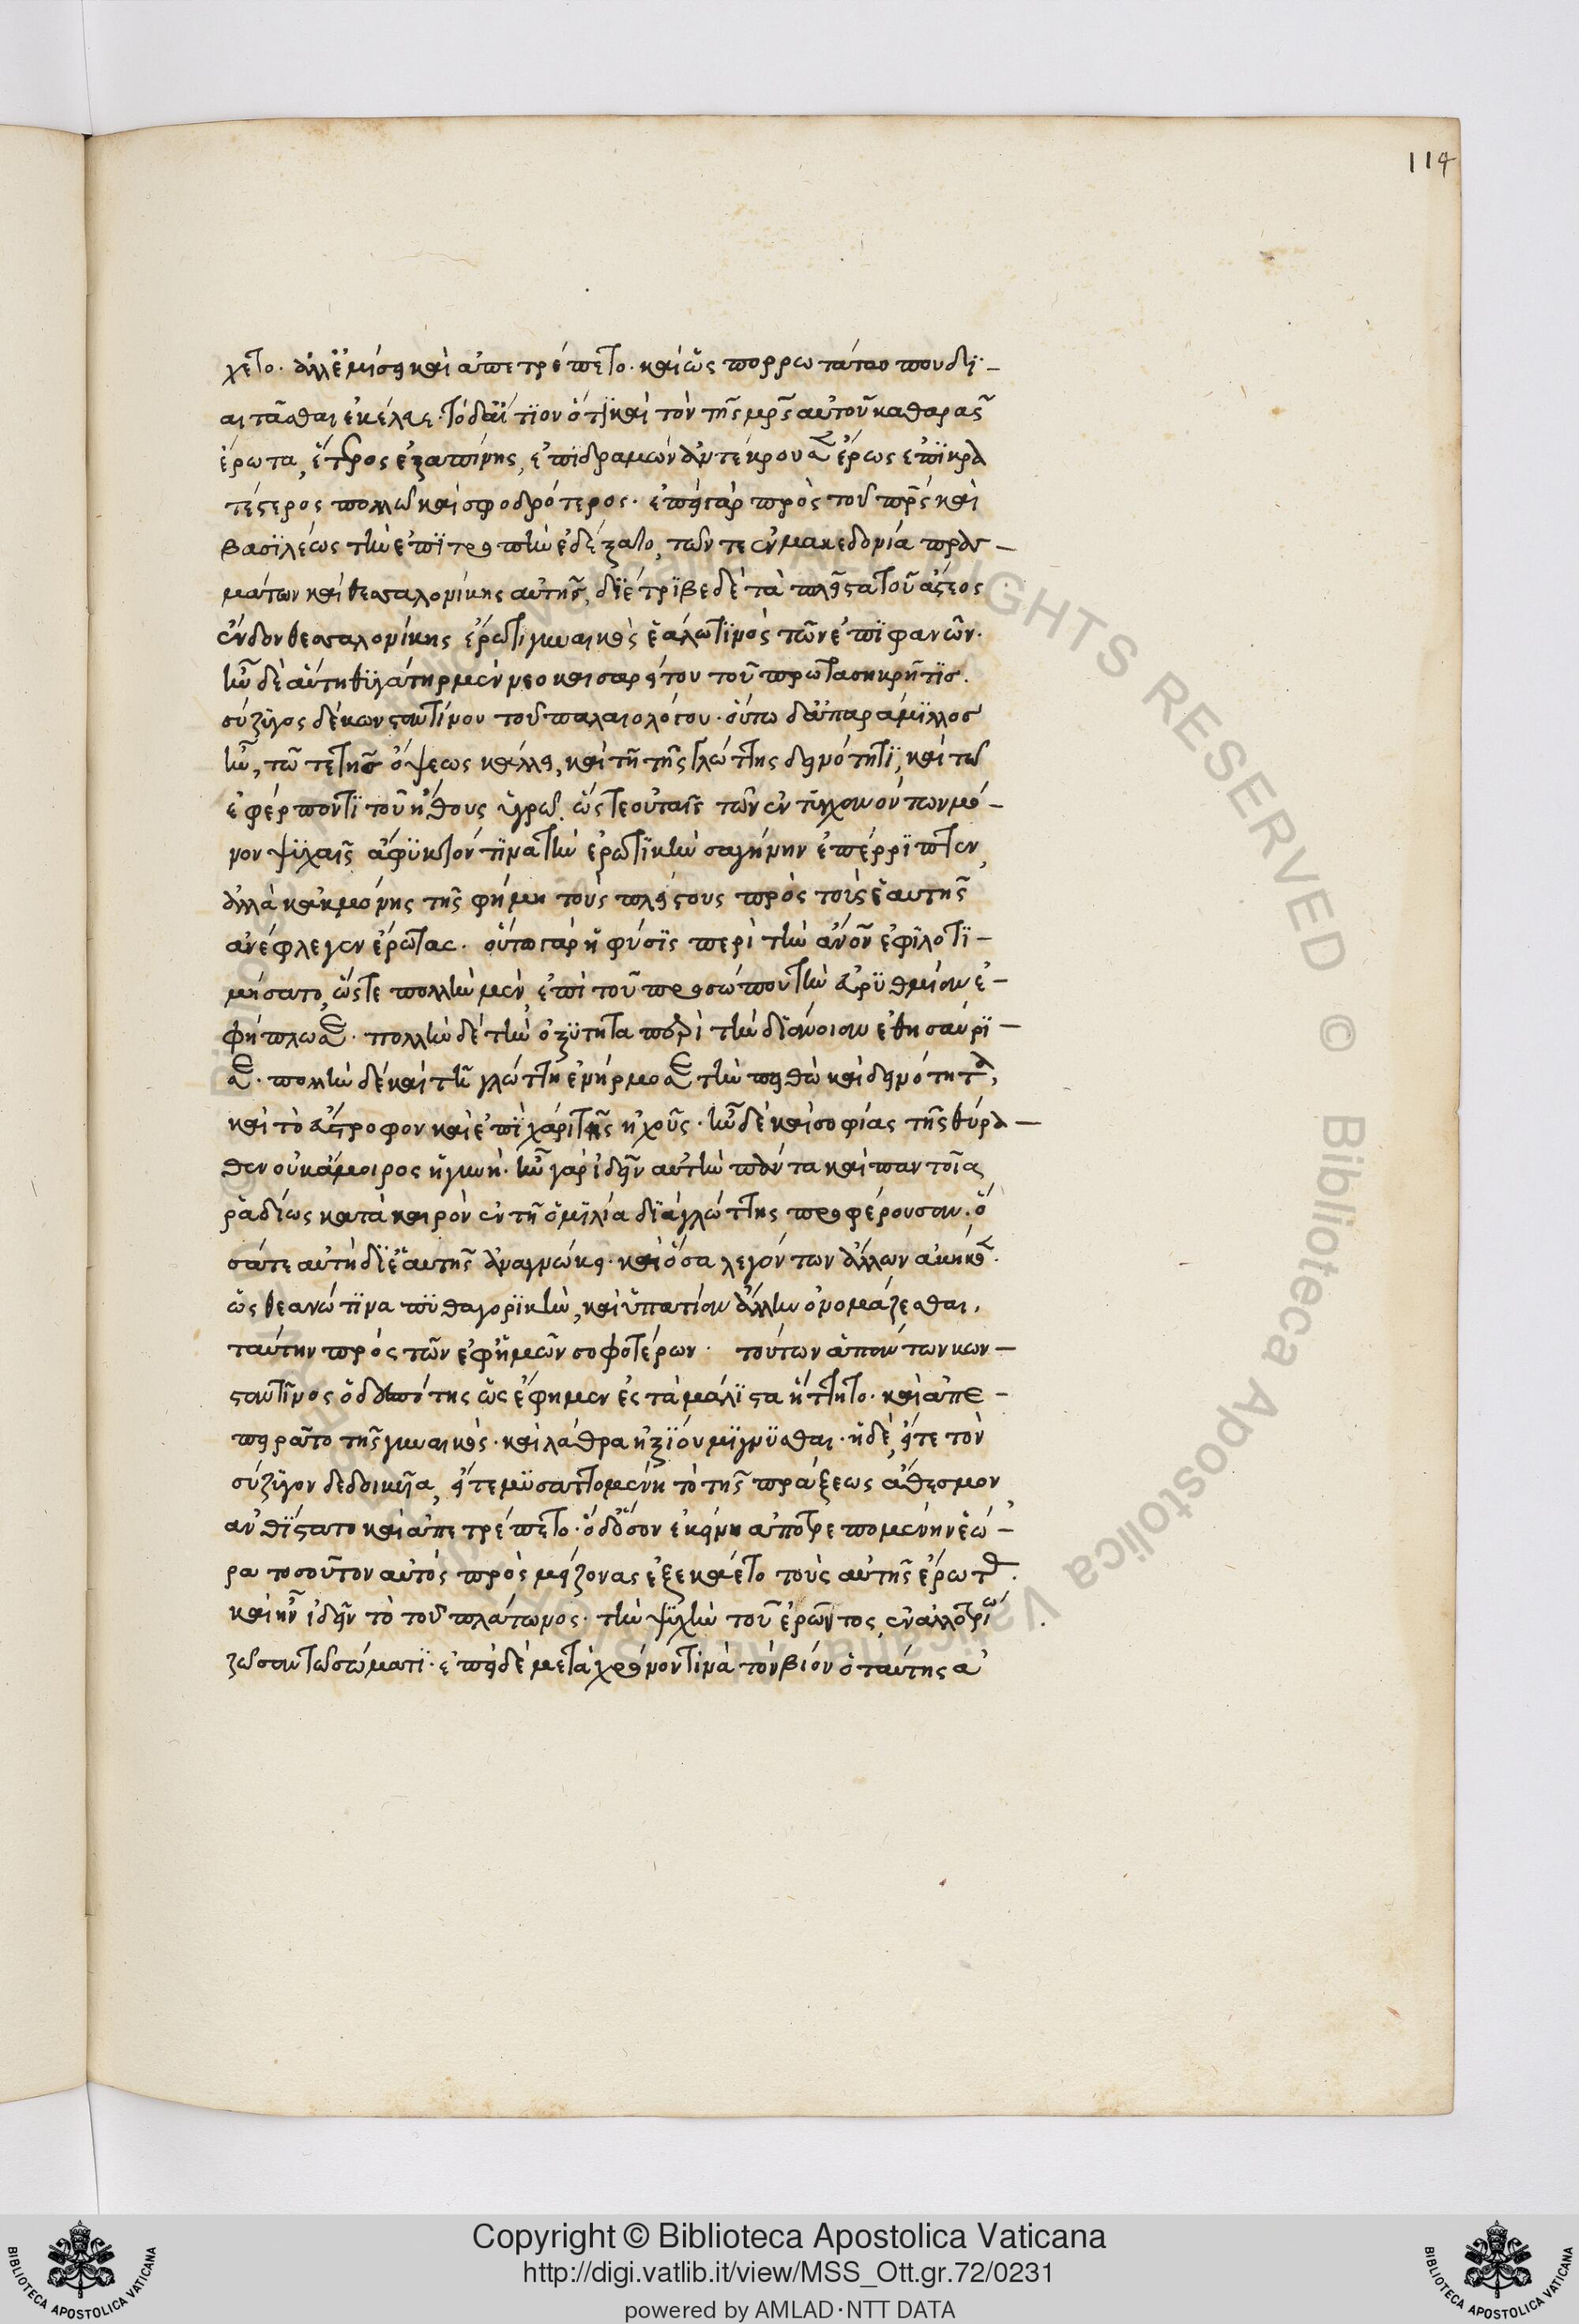 114
χετο. ἀλλ' ἐμίσει καὶ ἀπετρέπετο. καὶ ὡς πορρωτάτω που δι-
αιτᾶσθαι ἐκέλευε. τὸ δ' αἴτιον ὅτι καὶ τὸν τῆς μρς αὐτοῦ καθαρας
ἔρωτα, ἕτερος ἐξαπίνης, ἐπιδραμὼν ἀντέκρουσεν ἔρως ἐπικρα
τέστερος πολλῶ καὶ σφοδρότερος. ἐπεὶ γὰρ πρὸς τοῦ πρς καὶ
βασιλέως τὴν ἐπιτροπὴν ἐδέξατο, τῶν τε ἐν μακεδονία πραγ-
μάτων καὶ θεσσαλονίκης αὐτῆς, διέτριβε δὲ τὰ πλεῖστα τοῦ ἄστεος
ἔνδον θεσσαλονίκης ἔρωτι γυναικὸς ἑάλω τινὸς τῶν ἐπιφανῶν.
ἦν δὲ αὕτη θυγάτηρ μὲν νεοκαισαρείτου τοῦ πρωτασηκρῆτις.
σύζυγος δὲ κωνσταντίνου τοῦ παλαιολόγου. οὕτω δ' ἀπαράμιλλος
ἦν, τῶ τε τῆς ὄψεως κάλλει, καὶ τῆ τῆς γλώττης δεινότητι, καὶ τῶ
ἐφέρποντι τοῦ ἤθους ὑγρῶ. ὥστε οὐ ταῖς τῶν ἐντυγχανόντων μό-
νον ψυχαῖς ἄφυκτόν τινα τὴν ἐρωτικὴν σαγήνην ἐπέρριπτεν,
ἀλλὰ κἀκ μόνης τῆς φήμη τοὺς πλείστους πρὸς τοὺς ἑαυτῆς
ἀνέφλεγεν ἔρωτας. οὕτω γὰρ ἡ φύσις περὶ τὴν ἄνον ἐφιλοτι-
μήσατο, ὥστε πολλὴν μὲν, ἐπὶ τοῦ προσώπου τὴν εὐρυθμίαν ἐ-
φήπλωσε. πολλὴν δὲ τὴν ὀξύτητα περὶ τὴν διάνοιαν ἐθησαύρι-
σε. πολλὴν δὲ καὶ τῆ γλώττη ἐνήρμοσε τὴν πειθὼ καὶ δεινότητα,
καὶ τὸ εὔστροφον καὶ ἐπίχαρι τῆς ἠχοῦς. ἦν δὲ καὶ σοφίας τῆς θύρα-
θεν οὐκ ἄμοιρος ἡ γυνή. ἦν γὰρ ἰδεῖν αὐτὴν πάντα καὶ παντοῖα
ῥαδίως κατὰ καιρὸν ἐν τῆ ὁμιλία διὰ γλώττης προφέρουσαν. ὅ
σά τε αὐτὴ δι' ἑαυτῆς ἀνεγνώκει. καὶ ὅσα λεγόντων ἄλλων ἀκήκοε.
ὡς θεανώ τινα πυθαγορικὴν, καὶ ὑπατίαν ἄλλην ὀνομάζεσθαι,
ταύτην πρὸς τῶν ἐφ' ἡμῶν σοφωτέρων. τούτων ἁπάντων κων-
σταντῖνος ὁ δεσπότης ὡς ἔφημεν ἐς τὰ μάλιστα ἥττητο. καὶ ἀπε-
πειρᾶτο τῆς γυναικός. καὶ λάθρα ἠξίου μίγνυσθαι. ἡ δὲ, εἴτε τὸν
σύζυγον δεδοικυῖα, εἴτε μυσαττομένη τὸ τῆς πράξεως ἄθεσμον
ἀνθίστατο καὶ ἀπετρέπετο. ὁ δ' ὅσον ἐκείνη ἀποτρεπομένην ἑώ-
ρα τοσοῦτον αὐτὸς πρὸς μείζονας ἐξεκαίετο τοὺς αὐτῆς ἔρωτας.
καὶ ἦν ἰδεῖν τὸ τοῦ πλάτωνος. τὴν ψυχὴν τοῦ ἐρῶντος, ἐν ἀλλοτρίω
ζῶσαν τῶ σώματι. ἐπεὶ δὲ μετὰ χρόνον τινὰ τὸν βίον ὁ ταύτης ἀ
Copyright © Biblioteca Apostolica Vaticana
http://digi.vatlib.it/view/MSS_Ott.gr.72/0231
powered by AMLAD·NTT DATA